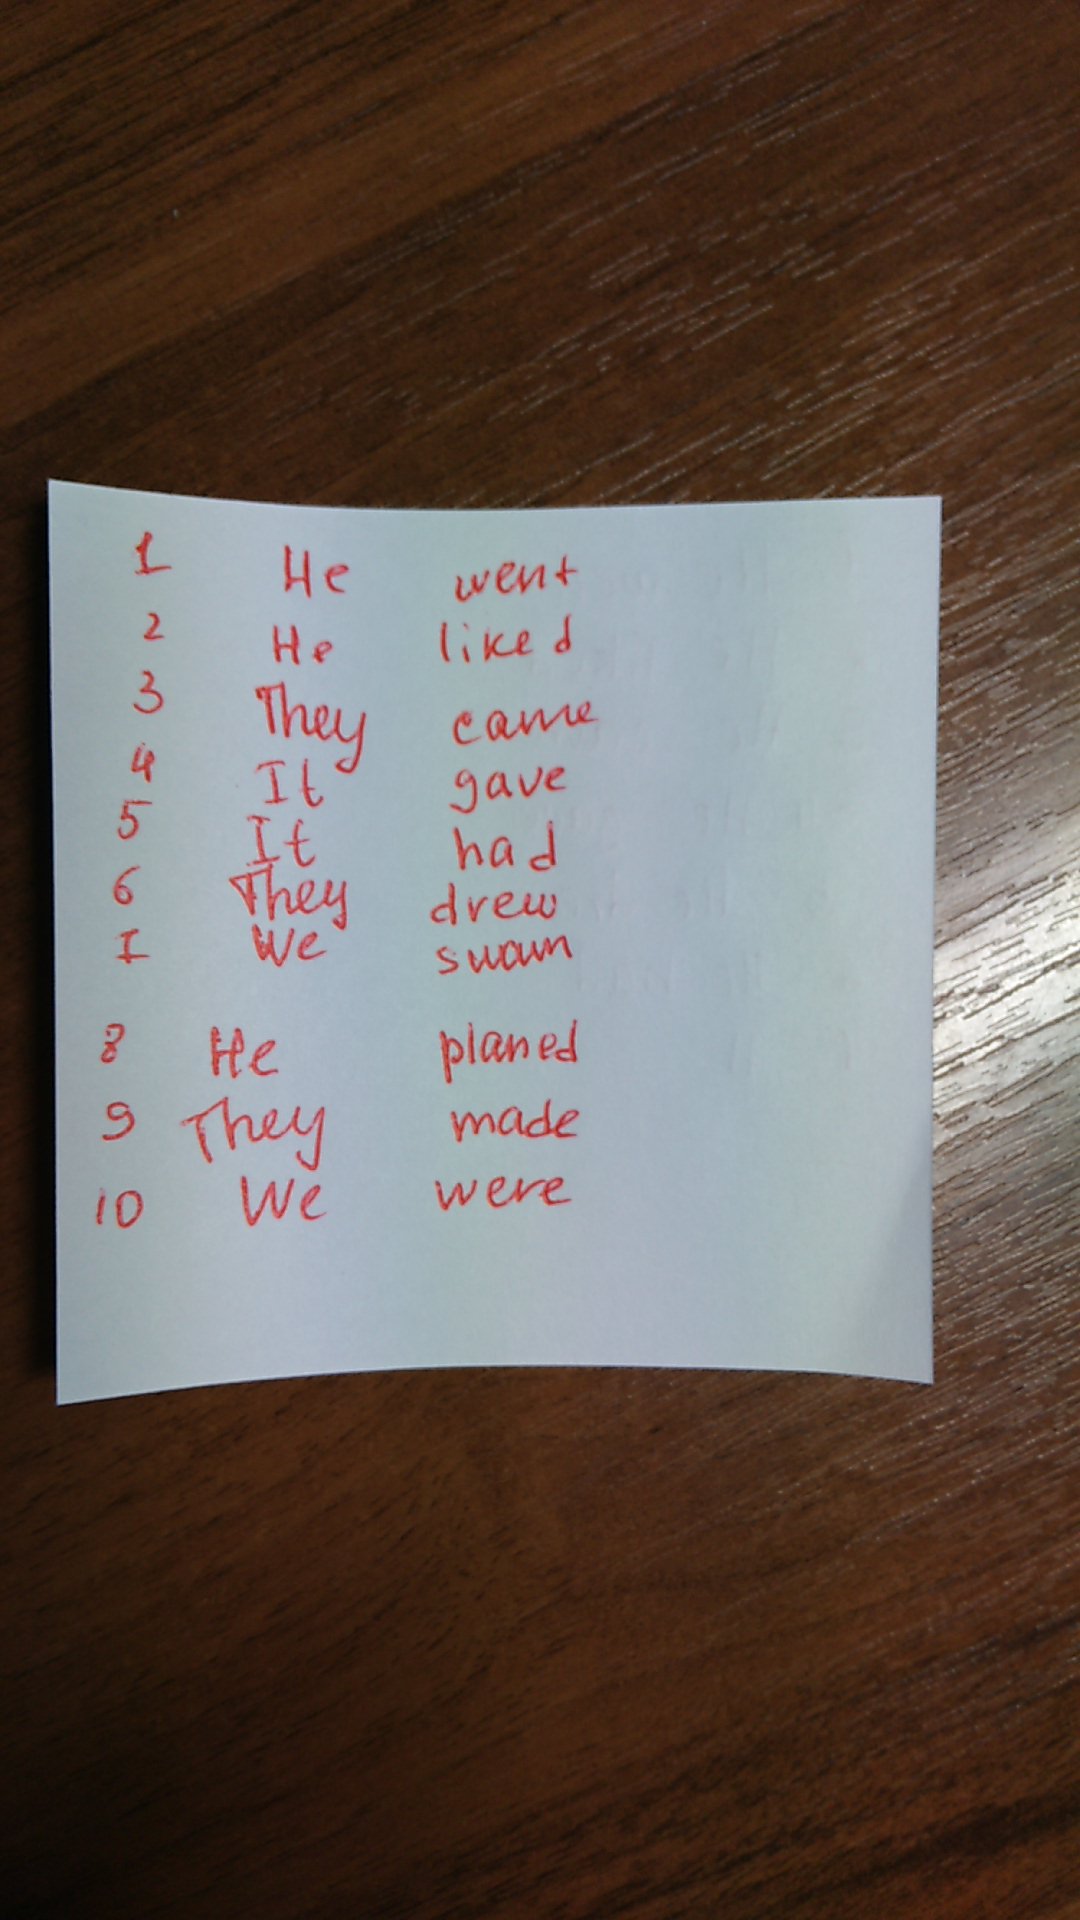 1 He went
2 He liked
3 They came
4 It gave
5 It had
6 They drew
I We swam
8 He planed
9 They made
10 We were